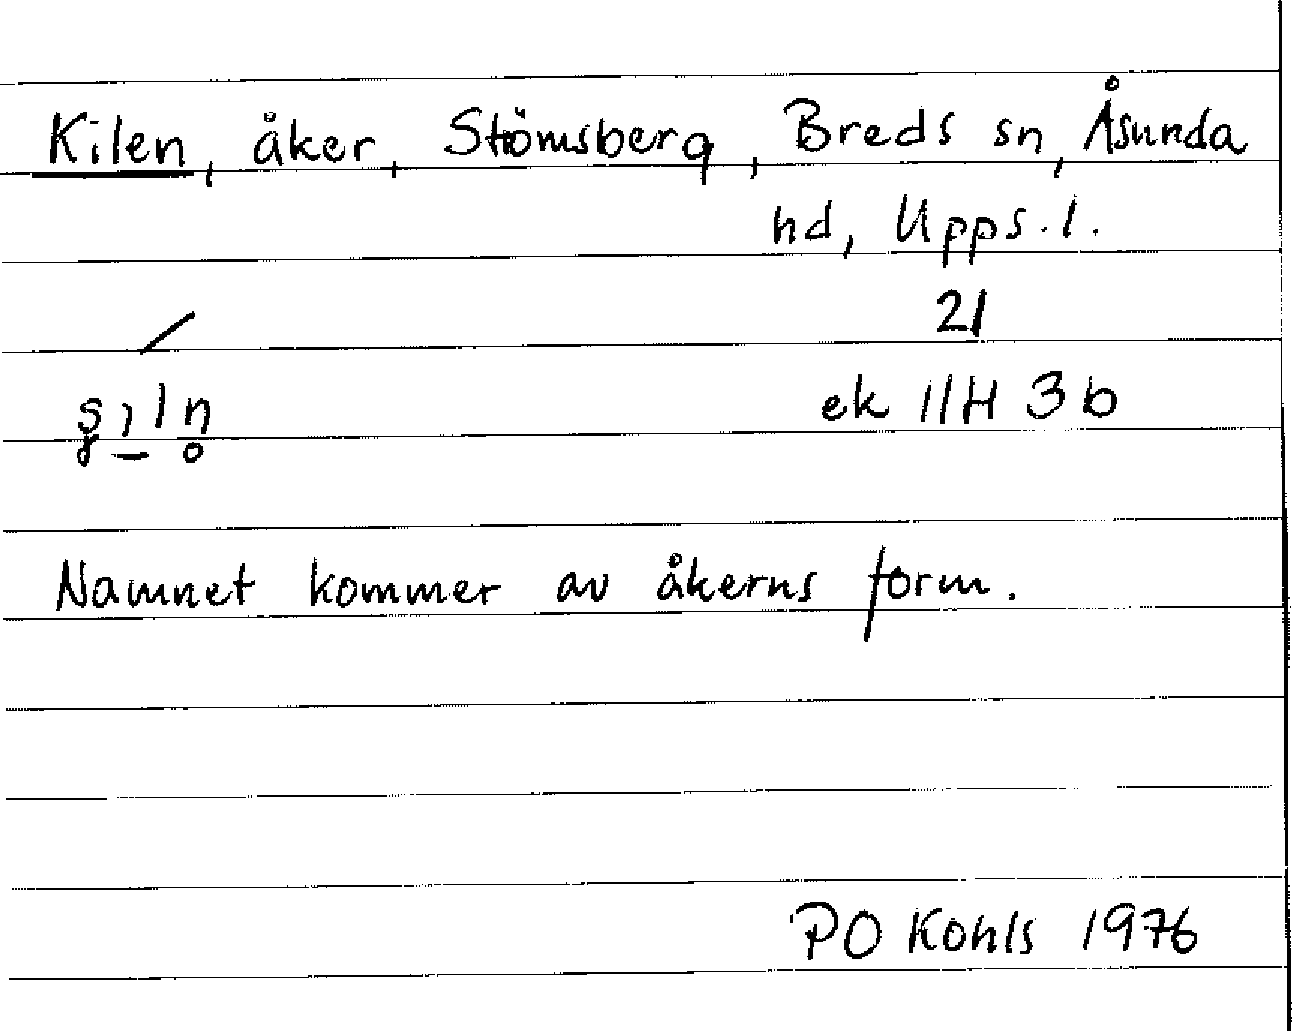 Kilen, åker, Stömsberg, Breds sn, Åsunda
hd, Upps. l.
21
ek 11H 3b
Namnet kommer av åkerns form.
PO Kohls 1976